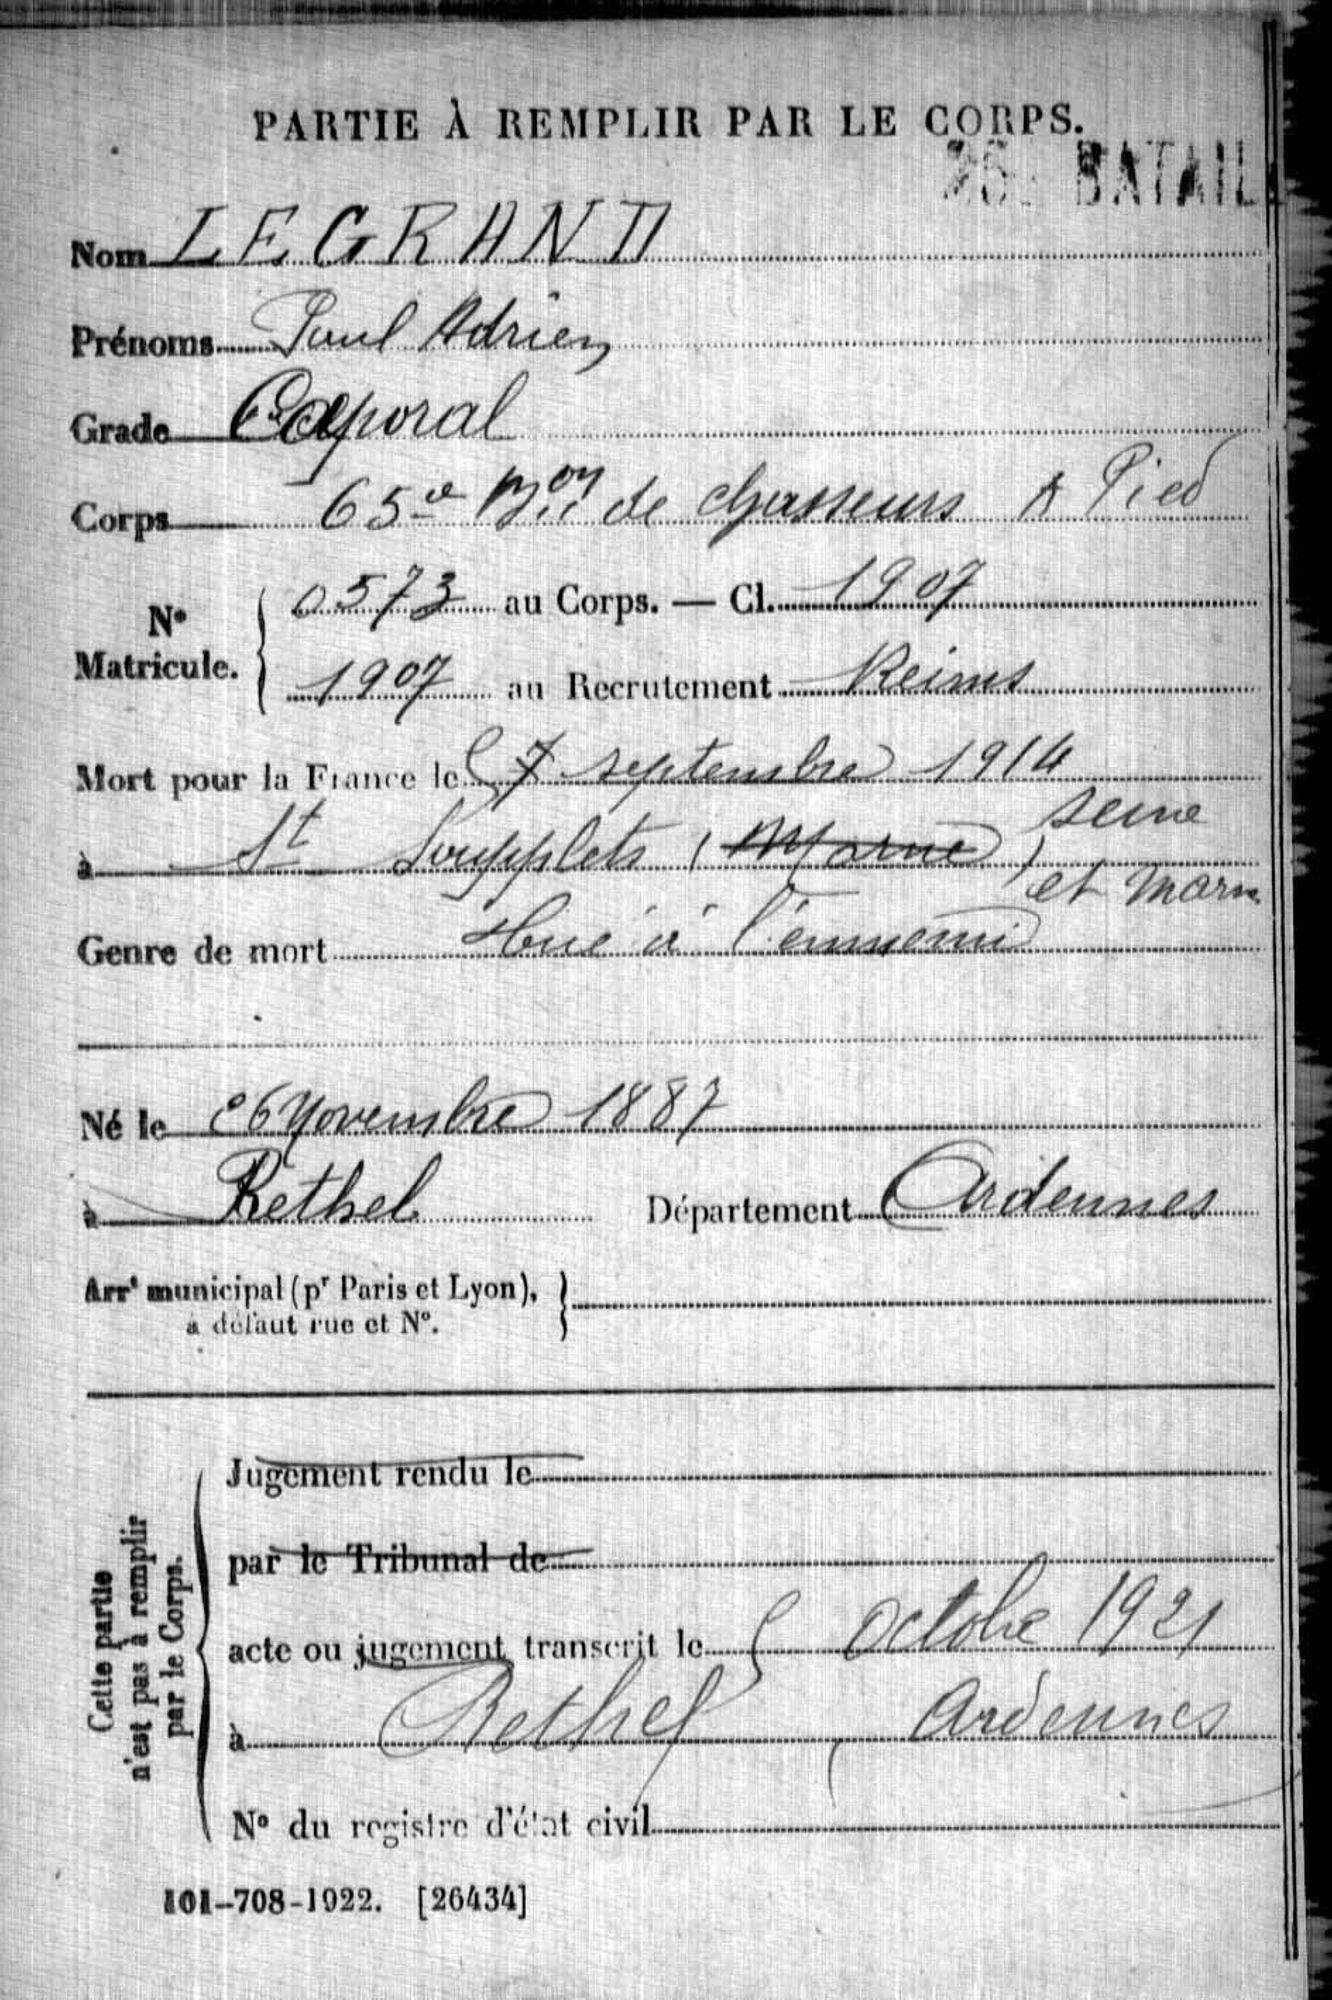 PARTIE À REMPLIR PAR LE CORPS.
BATAIL
Nom LEGRAND
Prénoms Paul Adrien
Grade Caporal
Corps 65e Bon de chasseurs A Pied
No Matricule. 0573 au Corps. — Cl. 1907
1907 au Recrutement Reims
Mort pour la France le 7 septembre 1914
à St Soupplets (Marne) seine
et Marne
Genre de mort Tué à l'ennemi
Né le 26 Novembre 1887
à Rethel Département Ardennes
Arrt municipal (pr Paris et Lyon),
à défaut rue et No.
Cette partie
n'est pas à remplir
par le Corps.
Jugement rendu le
par le Tribunal de
acte ou jugement transcrit le 5 octobre 1921
à Rethel, Ardennes
No du registre d'état civil
101-708-1922. [26434]